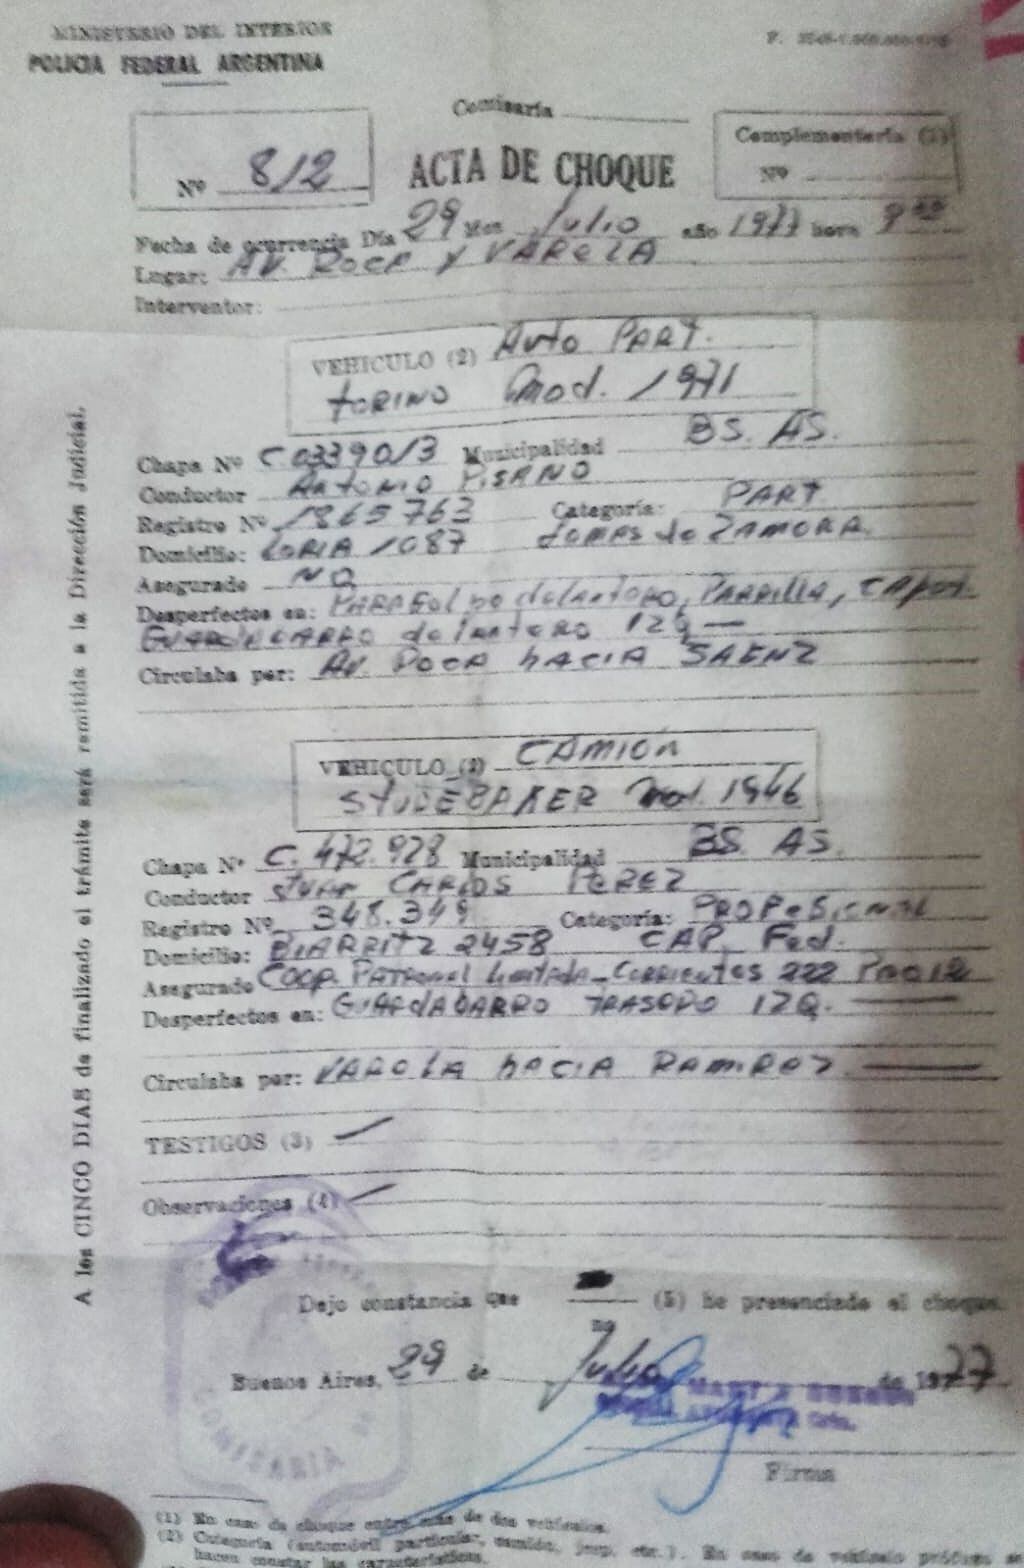 MINISTERIO DEL INTERIOR
POLICIA FEDERAL ARGENTINA
Comisaría
Nº 812
ACTA DE CHOQUE
Complementaria (1)
Nº
Fecha de ocurrencia Día 29 Mes Julio año 1977 hora 9
Lugar: AV. ROCA y VARELA
Interventor:
VEHICULO (2) Auto PART.
TORINO Mod. 1971
Chapa Nº C 0339013 Municipalidad BS. AS.
Conductor ANTONIO PISANO
Registro Nº 1865763 Categoría: PART
Domicilio: LORIA 1087 LOMAS de ZAMORA.
Asegurado NO
Desperfectos en: PARAGOLPE delantero, PARRILLA, CAPOT.
GUARDABARRO delantero IZQ —
Circulaba por: AV. ROCA hACIA SAENZ
VEHICULO (2) CAMION
STUDEBAKER Mod. 1946
Chapa Nº C. 472.928 Municipalidad BS AS.
Conductor JUAN CARLOS PEREZ
Registro Nº 348.349 Categoría: PROFESIONAL
Domicilio: BIARRITZ 2458 CAP. Fed.
Asegurado COOP. PATRONAL Limitada - Corrientes 222 Piso 12
Desperfectos en: GUARDABARRO TRASERO IZQ. —
Circulaba por: VARELA hACIA RAMIREZ —
TESTIGOS (3) —
Observaciones (4) —
Dejo constancia que no (5) he presenciado el choque.
Buenos Aires, 29 de Julio de 1977
Firma
COMISARIA
(1) En caso de choque entre más de dos vehículos.
(2) Categoría (automóvil particular, camión, jeep, etc.). En caso de vehículo
hacen constar las características.
A los CINCO DIAS de finalizado el trámite será remitida a la Dirección Judicial.